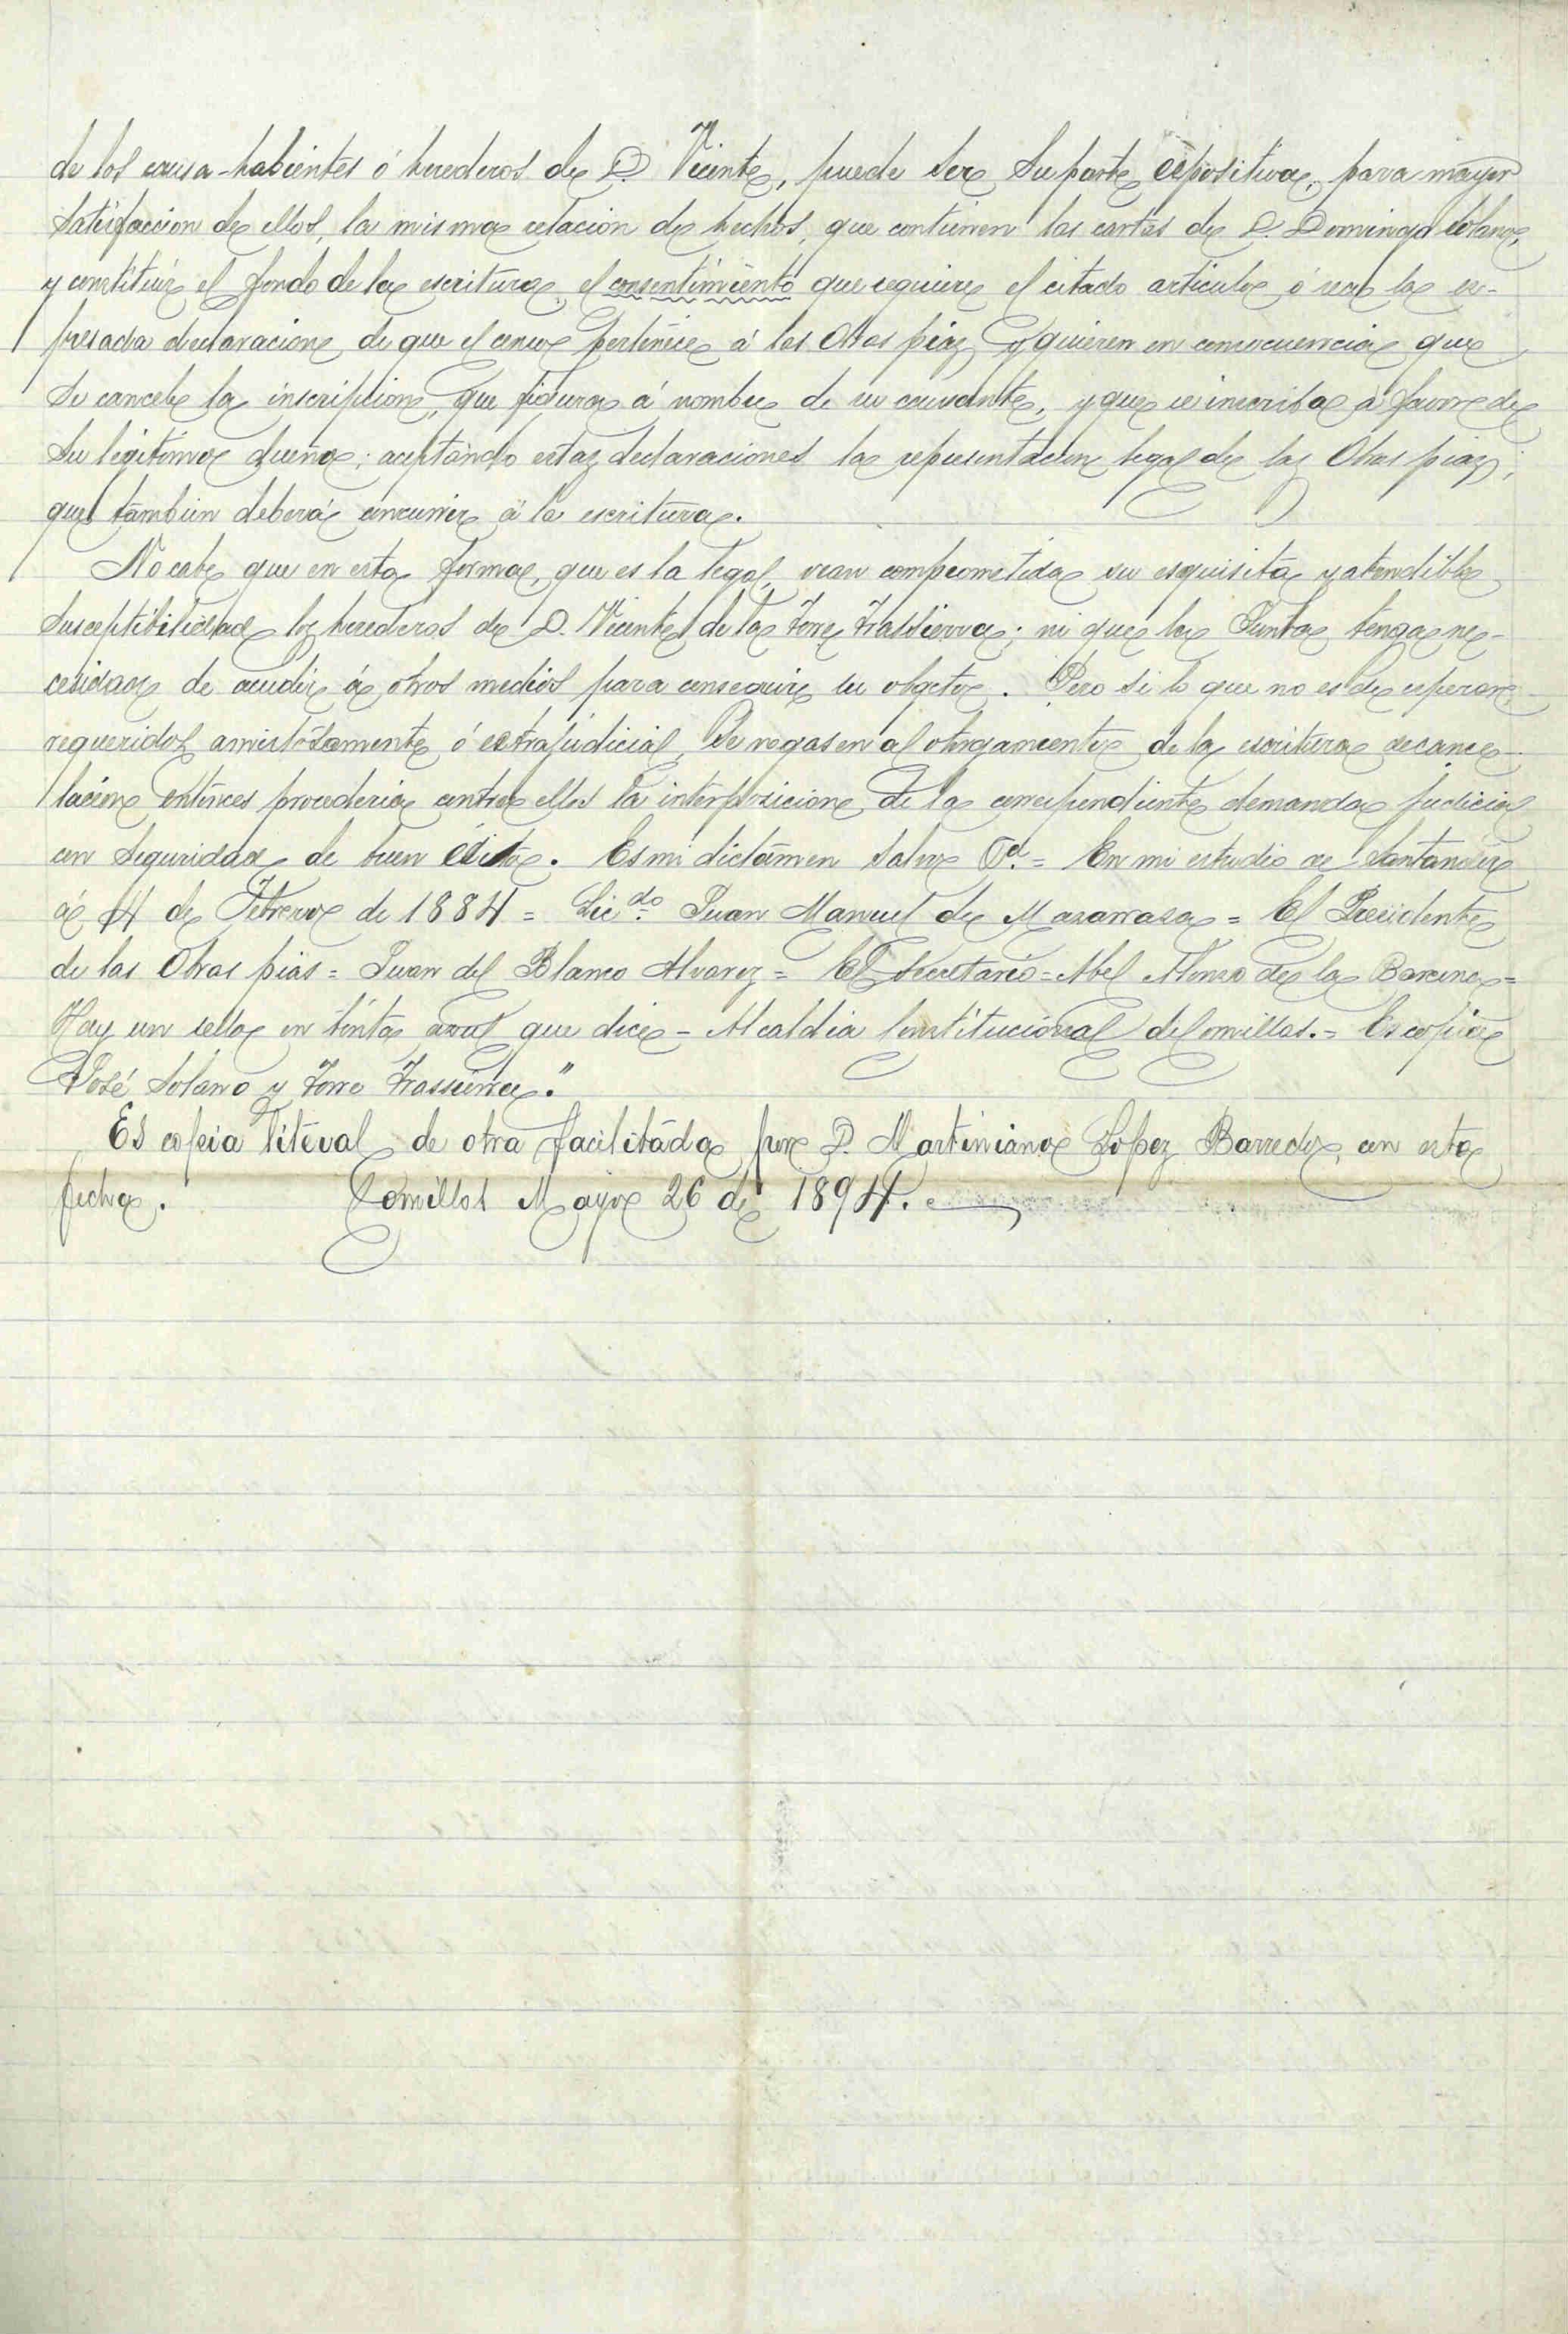 de los causa-habientes ó herederos de D. Vicente, puede ser su parte espositiva, para mayor
satisfaccion de ellos, la misma relacion de hechos, que contienen las cartas de D. Domingo Solano,
y constituir el fondo de la escritura, el consentimiento que requiere el citado articulo ó sea la es-
presada declaracion de que el censo pertenece á las Obras pias y quieren en consecuencia que
se cancele la inscripcion, que figura á nombre de su causante, y que se inscriba á favor de
su legitimo dueño; aceptando estas declaraciones la representacion legal de las Obras pias,
que tambien deberá concurrir á la escritura.
No cabe que en esta forma, que es la legal, vean comprometida su esquisita y atendible
susceptibilidad los herederos de D. Vicente de la Torre Trassierra; ni que la Junta tenga ne-
cesidad de acudir á otros medios para conseguir su objeto. Pero si lo que no es de esperar,
requeridos amistosamente ó extrajudicial, se negasen al otorgamiento de la escritura de cance-
lacion entonces procederia contra ellos la interposicion de la correspondiente demanda judicial
con seguridad de buen éxito. Es mi dictámen salvo = En mi estudio de Santander
á 4 de Febrero de 1884 = Licdo. Juan Manuel de Mazarrasa = El Presidente
de las Obras pias = Juan del Blanco Alvarez = El Secretario = Abel Alonso de la Barcena =
Hay un sello en tinta azul que dice - Alcaldia Constitucional de Comillas. = Es copia
José Solano y Torre Trassierra."
Es copia literal de otra facilitada por D. Martiniano Lopez Barredo, con esta
fecha. Comillas Mayo 26 de 1894.